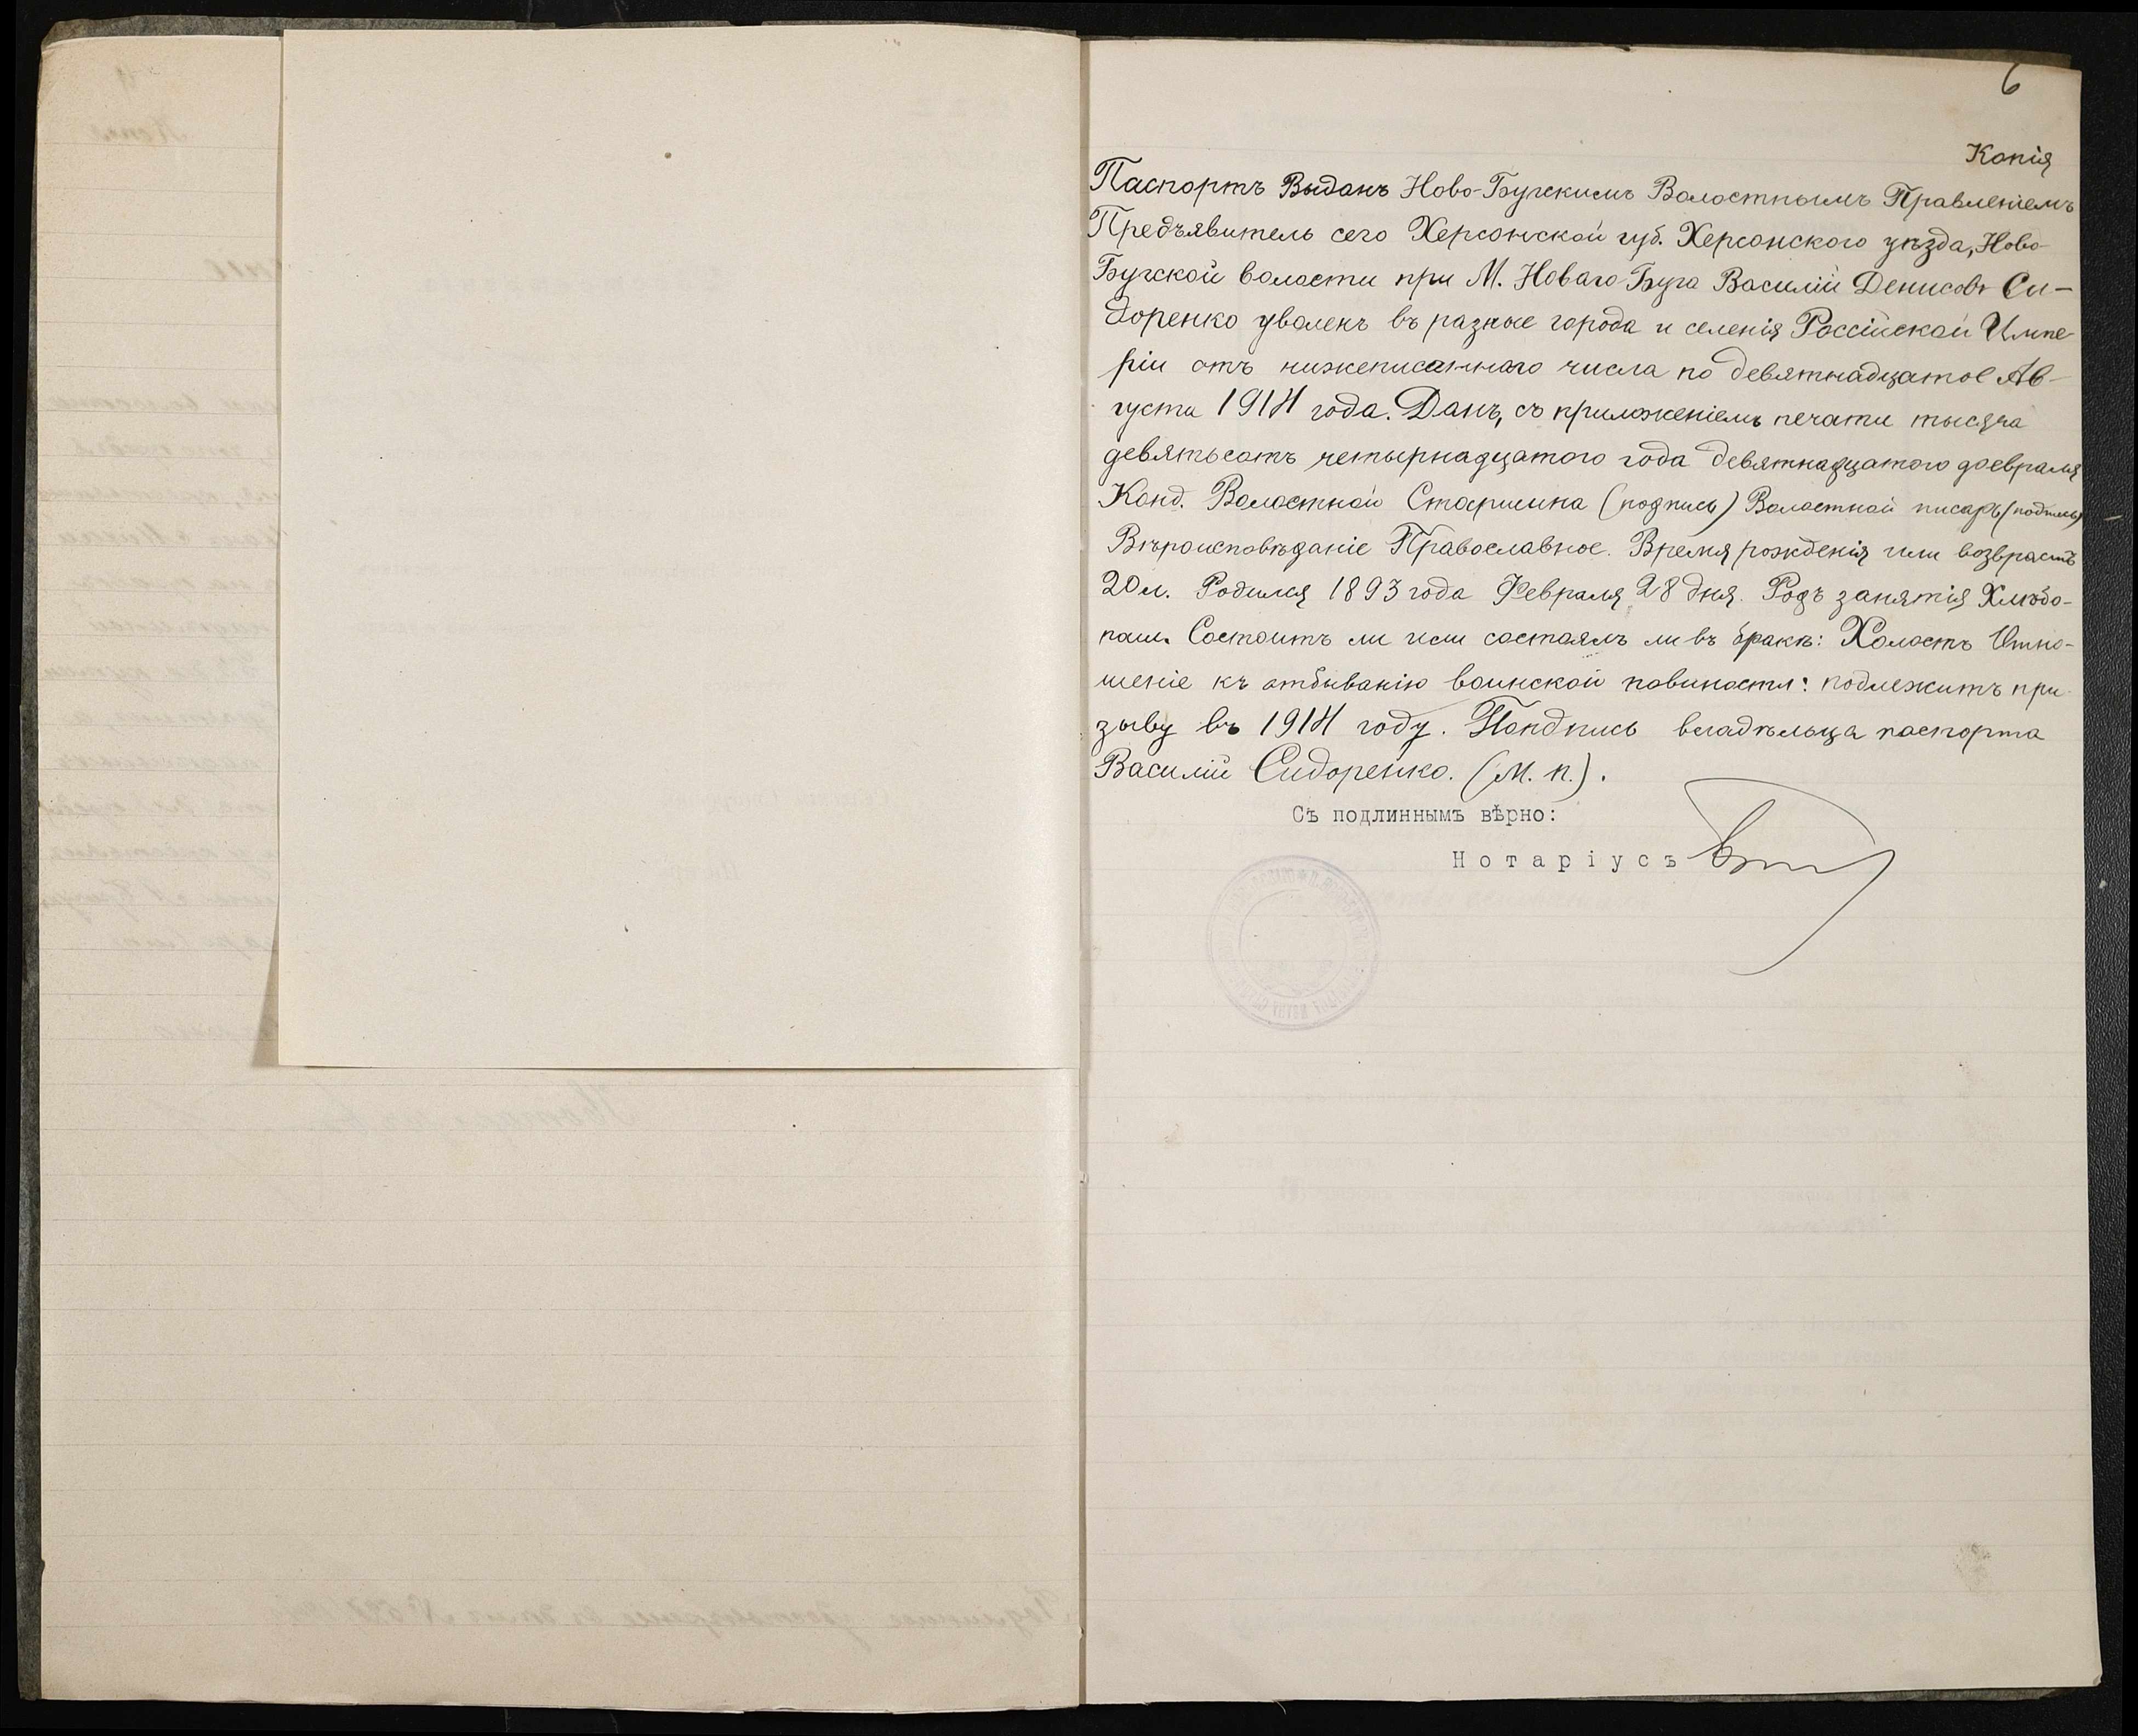 6
Копія
Паспортъ Выданъ Ново-Бугскимъ Волостнымъ Правленіемъ
Предъявитель сего Херсонской губ. Херсонского уѣзда, Ново-
Бугской волости при М. Новаго Буга Василій Денисовъ Си-
доренко уволенъ въ разные города и селенія Россійской Импе-
ріи отъ нижеписаннаго числа по девятнадцатое Ав-
густа 1914 года. Данъ, съ приложеніемъ печати тысяча
девятьсотъ четырнадцатого года девятнадцатого февраля
Канд. Волостной Старшина (подпись) Волостной писарь (подпись)
Вѣроисповѣданіе Православное. Время рожденія или возврастъ
20 л. Родился 1893 года Февраля 28 дня. Родъ занятія Хлѣбо-
паш. Состоитъ ли или состоялъ ли въ бракѣ: Холостъ Отно-
шеніе къ отбыванію воинской повиности: подлежитъ при-
зыву въ 1914 году. Пондпись владѣльца паспорта
Василій Сидоренко. (М. п.).
Съ подлиннымъ вѣрно:
Нотаріусъ